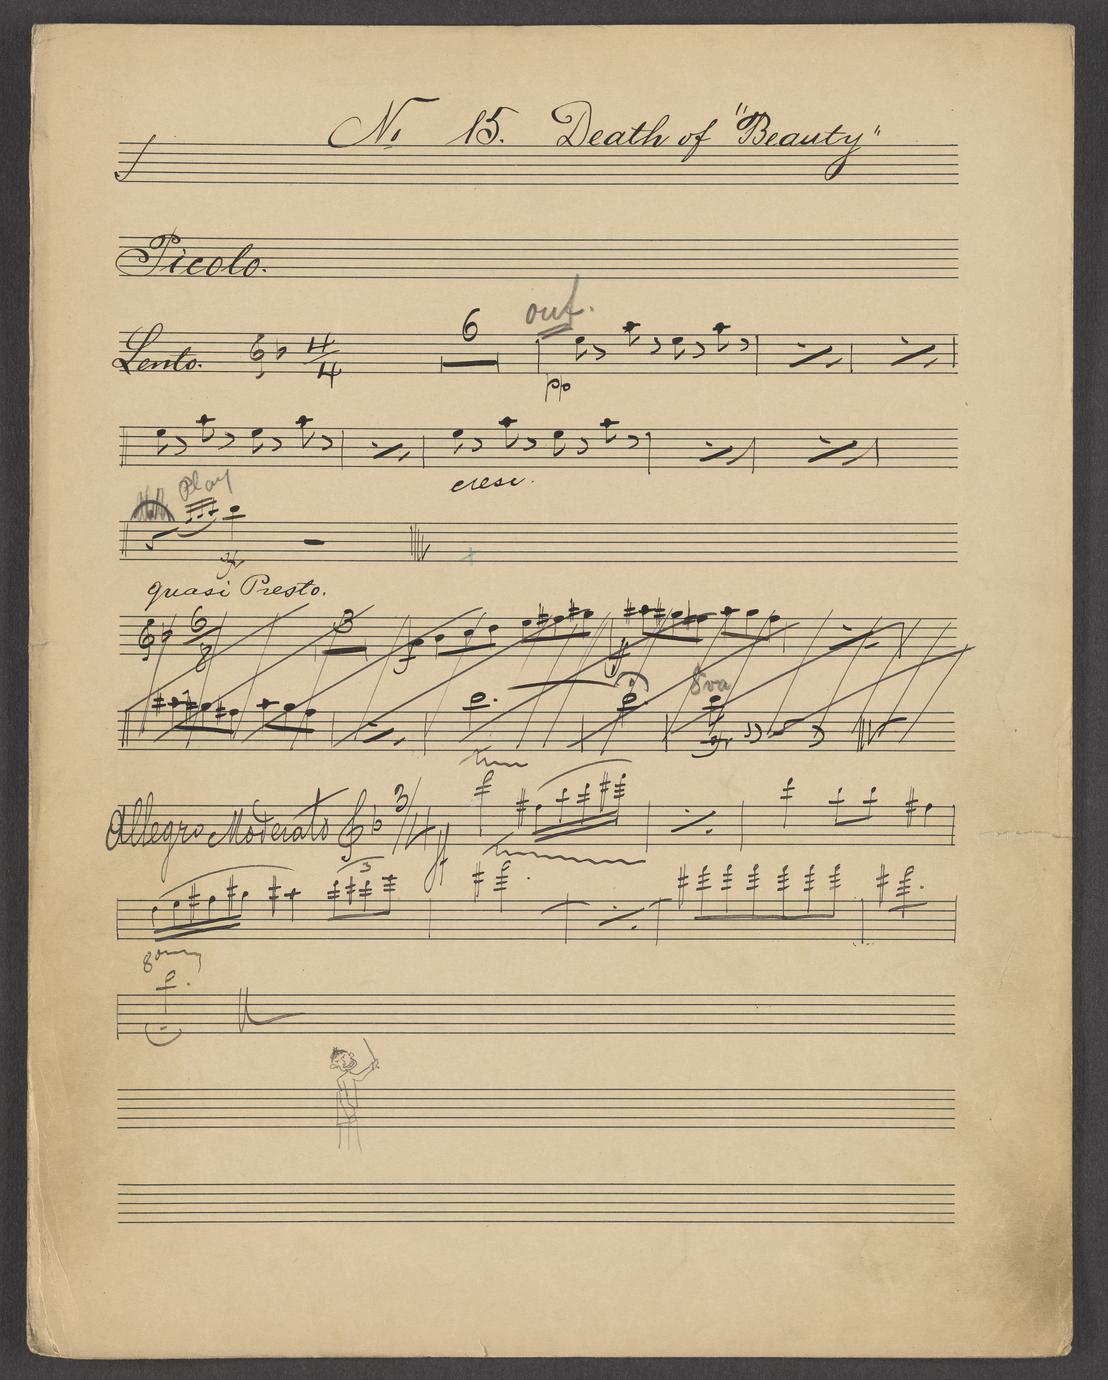 No 15. Death of "Beauty"
Picolo.
out.
6
Lento. 4/4
pp
cresc.
Play
quasi Presto.
6/8 3
f
8va
Allegro Moderato 3/4
ff
3